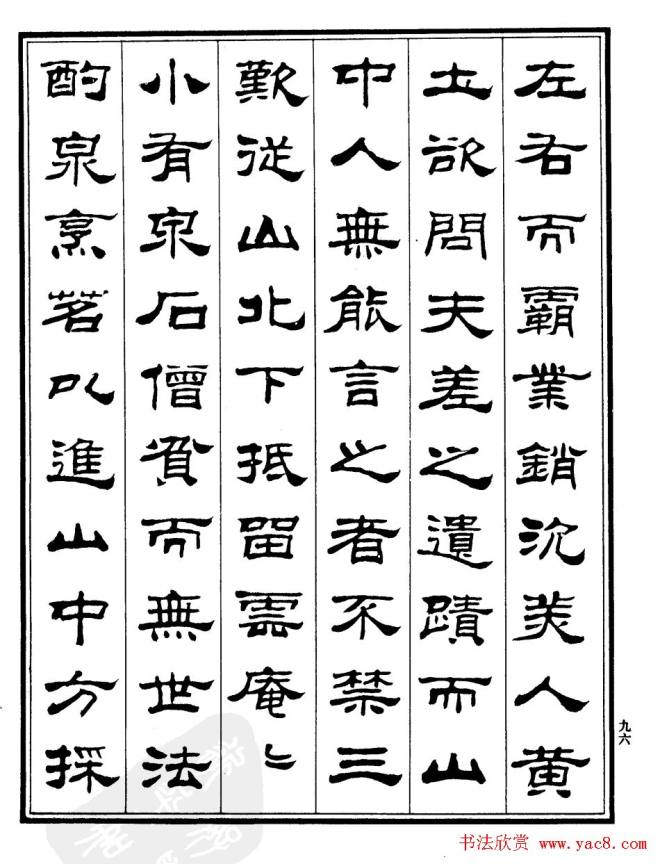 左右而霸業銷沉美人黄
土欲問夫差之遺蹟而山
中人無能言之者不禁三
歎從山北下抵留雲庵〻
小有泉石僧貧而無世法
酌泉烹茗以進山中方採
九六
书法欣赏 www.yac8.com